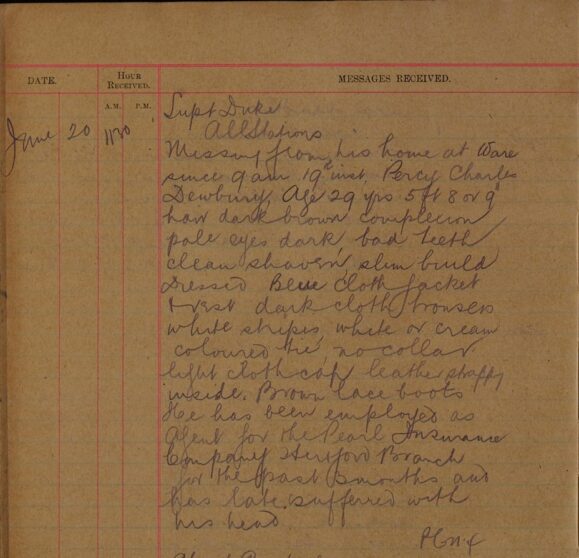 DATE.
HOUR RECEIVED.
MESSAGES RECEIVED.
A.M. P.M.
June 20 1130
Supt Duke
All Stations
Missing from his home at Ware
since 9 am 19th inst Percy Charles
Dewbury, Age 29 yrs 5 ft 8 or 9"
hair dark brown complexion
pale eyes dark, bad teeth
clean shaven, slim build
Dressed Blue cloth Jacket
& vest dark cloth trousers
white stripes, white or cream
coloured tie, no collar
light cloth cap leather
inside. Brown lace boots
He has been employed as
Agent for the Pearl Insurance
Company Hertford Branch
for the past months and
has late suffered with
his head